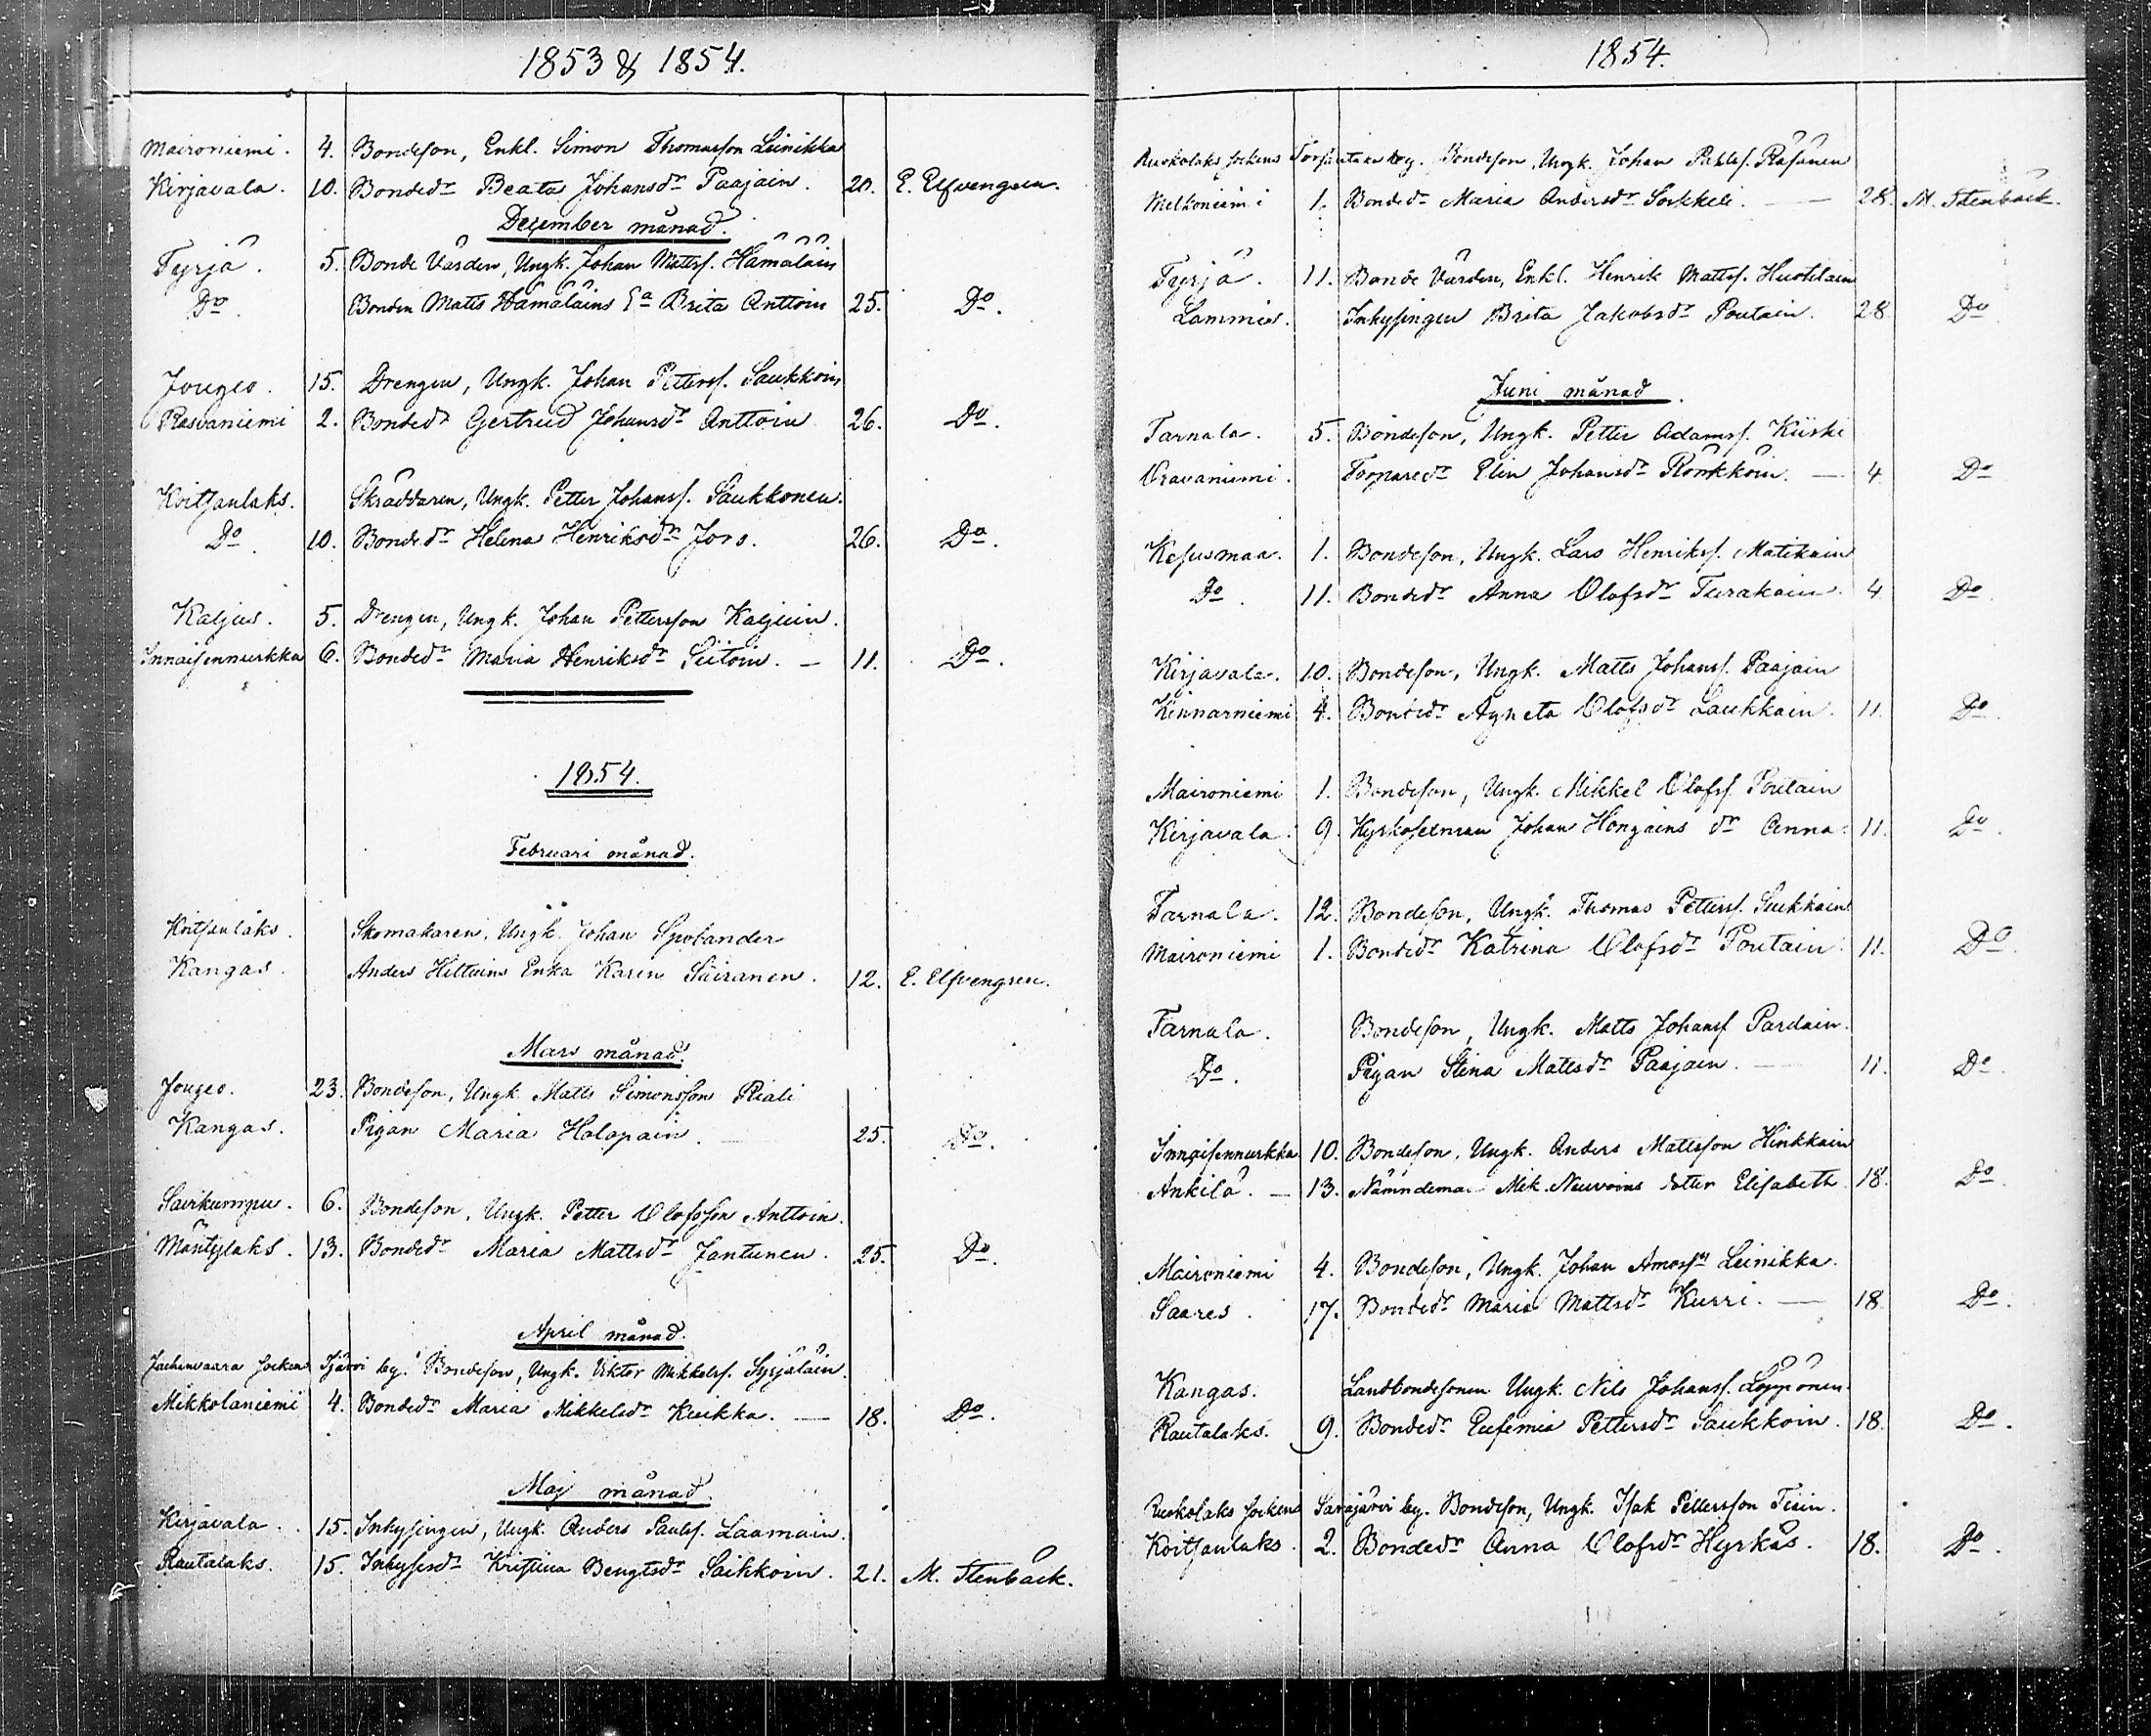 1853 & 1854.
Maironiemi. 4. Bondeson, Enkl. Simon Thomasson Leinikka
Kirjavala. 10. Bondedr Beata Johansdr Paajain. 20. E. Elfvengren.
December månad.
Tyrjä. 5. Bonde Vården, Ungk. Johan Mattsf. Hämäläin
Do Bonden Matts Hämäläins Ea Brita Anttoin 25. Do.
Jougio. 15. Drengen, Ungk. Johan Pettersf. Saukkoin
Rasvaniemi 2. Bondedr Gertrud Johansdr Anttoin 26. Do.
Koitsanlaks. Skräddaren, Ungk. Petter Johansf. Saukkonen.
Do. 10. Bondedr Helena Henriksdr Joro. 26. Do.
Kaljus. 5. Drengen, Ungk. Johan Pettersson Kaljuin.
Innaisennurkka 6. Bondedr Maria Henriksdr Siitoin. — 11. Do.
1854.
Februari månad.
Koitsanlaks. Skomakaren, Ungk. Johan Spolander
Kangas. Anders Hiltuins Enka Karin Säiranen. 12. E. Elfvengren.
Mars månad.
Jougio. 23. Bondeson, Ungk. Matts Simonsson Riali
Kangas. Pigan Maria Halapain. 25. Do.
Sarikumpu. 6. Bondeson, Ungk. Petter Olofsson Anttoin.
Mäntylaks. 13. Bondedr Maria Mattsdr Jantunen. 25. Do.
April månad.
Sockens by. Bondeson, Ungk. Viktor Mikkelsf. Syrjäläin.
Mikkolaniemi 4. Bondedr Maria Mikkelsdr Kuikka. — 18. Do.
Maj månad.
Kirjavala. 15. Inhysingen, Ungk. Anders Paulsf. Laamain.
Rautalaks. 15. Inhysesdr Kristina Bengtsdr Saikkoin. 21. M. Stenbäck.
1854.
Ruokolaks sockens by. Bondeson, Ungk. Johan Räsänen
Melkoniemi 1. Bondedr Maria Andersdr Sorkkeli. — 28. M. Stenbäck.
Tyrjä. 11. Bonde Vården, Enkl. Henrik Mattsf. Huohilain
Lammin. Inhysingen Brita Jakobsdr Poutain. 28 Do
Juni månad.
Tarnala. 5. Bondeson, Ungk. Petter Adamsf. Kiiski
Oravaniemi. Torparedr Elin Johansdr Rönkköin. — 4 Do
Kesusmaa. 1. Bondeson, Ungk. Lars Henriksf. Matikain
Do. 11. Bondedr Anna Olofsdr Turakain. 4 Do.
Kirjavala. 10. Bondeson, Ungk. Matts Johansf. Paajain
Kinnarniemi 4. Bondedr Agneta Olofsdr Laukkain. 11. Do.
Maironiemi 1. Bondeson, Ungk. Mikkel Olofsf. Poutain
Kirjavala. 9. Johan Hongains dr Anna. 11. Do.
Tarnala. 12. Bondeson, Ungk. Thomas Pettersf.
Maironiemi 1. Bondedr Katrina Olofsdr Poutain. 11. Do.
Tarnala. Bondeson, Ungk. Matts Johansf Pardain.
Do. Pigan Stina Mattsdr Paajain. — 11. Do.
Innaisennurkka 10. Bondeson, Ungk. Anders Mattsson Hinkkain
Ankila. — 13. Nämndeman Mik. Neuvoins dotter Elisabeth 18. Do.
Maironiemi 4. Bondeson, Ungk. Johan Leinikka.
Saares. 17. Bondedr Maria Mattsdr Kurri. — 18 Do.
Kangas. Landbondesonen Ungk. Nils Johansf. Löppönen.
Rautalaks. 9. Bondedr Eufemia Pettersdr Saukkoin. 18. Do.
Ruokolaks sockens Sarajärvi by. Bondeson, Ungk. Isak Pettersson
Koitsanlaks. 2. Bondedr Anna Olofsdr Hyrkäs. 18. Do.